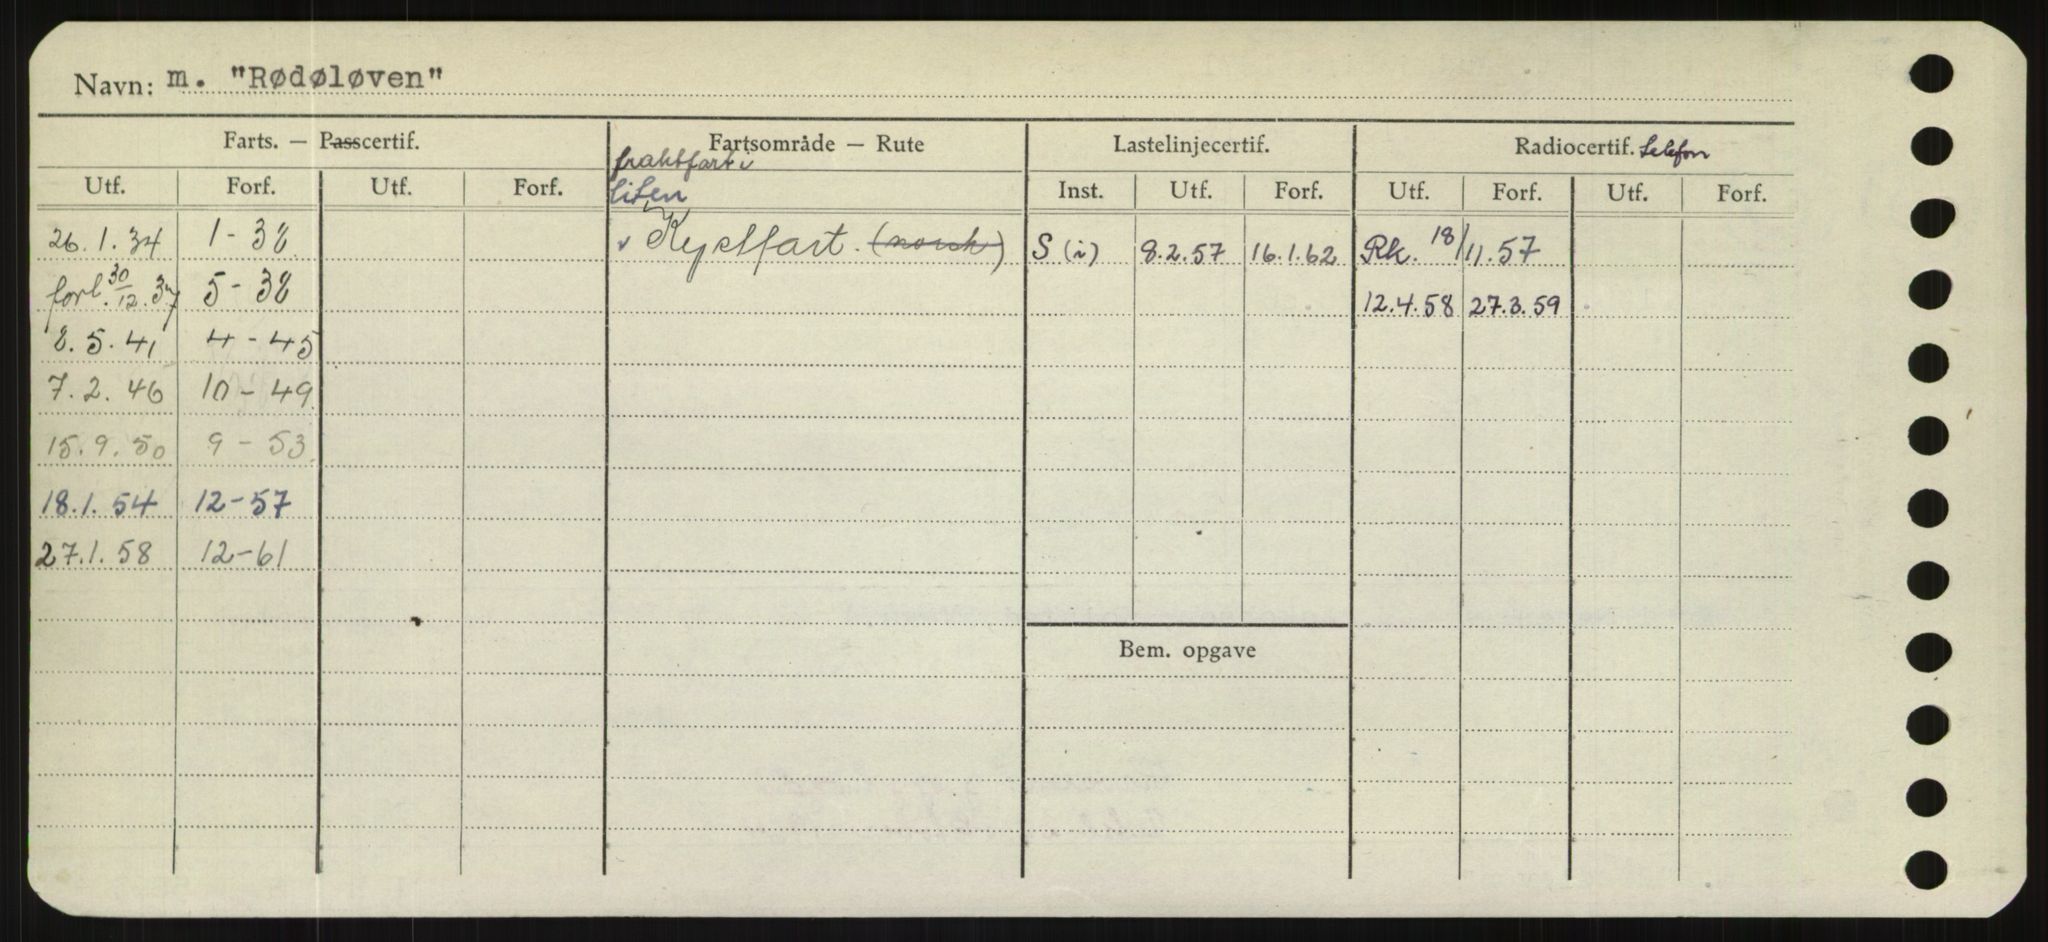 Navn: m. "Rødøløven"
Farts. — Passcertif. Fartsområde — Rute Lastelinjecertif. Radiocertif. telefon
fraktfart i
Utf. Forf. Utf. Forf. liten Inst. Utf. Forf. Utf. Forf. Utf. Forf.
26.1.34 1-38 v Kystfart. (norsk) S (i) 8.2.57 16.1.62 Rk. 18/11.57
forl. 30/12.37 5-38 12.4.58 27.3.59
8.5.41 4-45
7.2.46 10-49
15.9.50 9-53
18.1.54 12-57
27.1.58 12-61
Bem. opgave